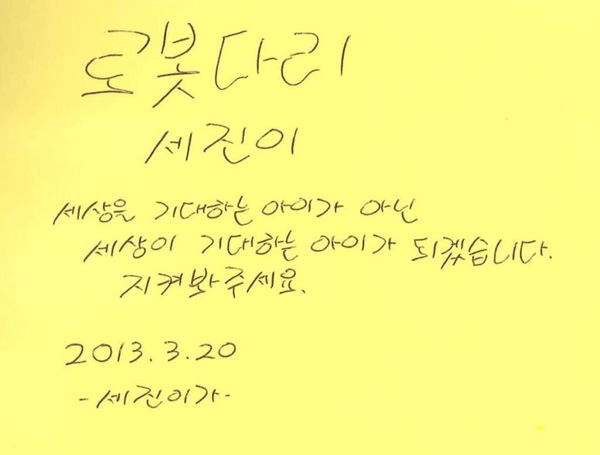 로봇다리
세진이
세상을 기대하는 아이가 아닌
세상이 기대하는 아이가 되겠습니다.
지켜봐주세요.
2013.3.20
-세진이가-